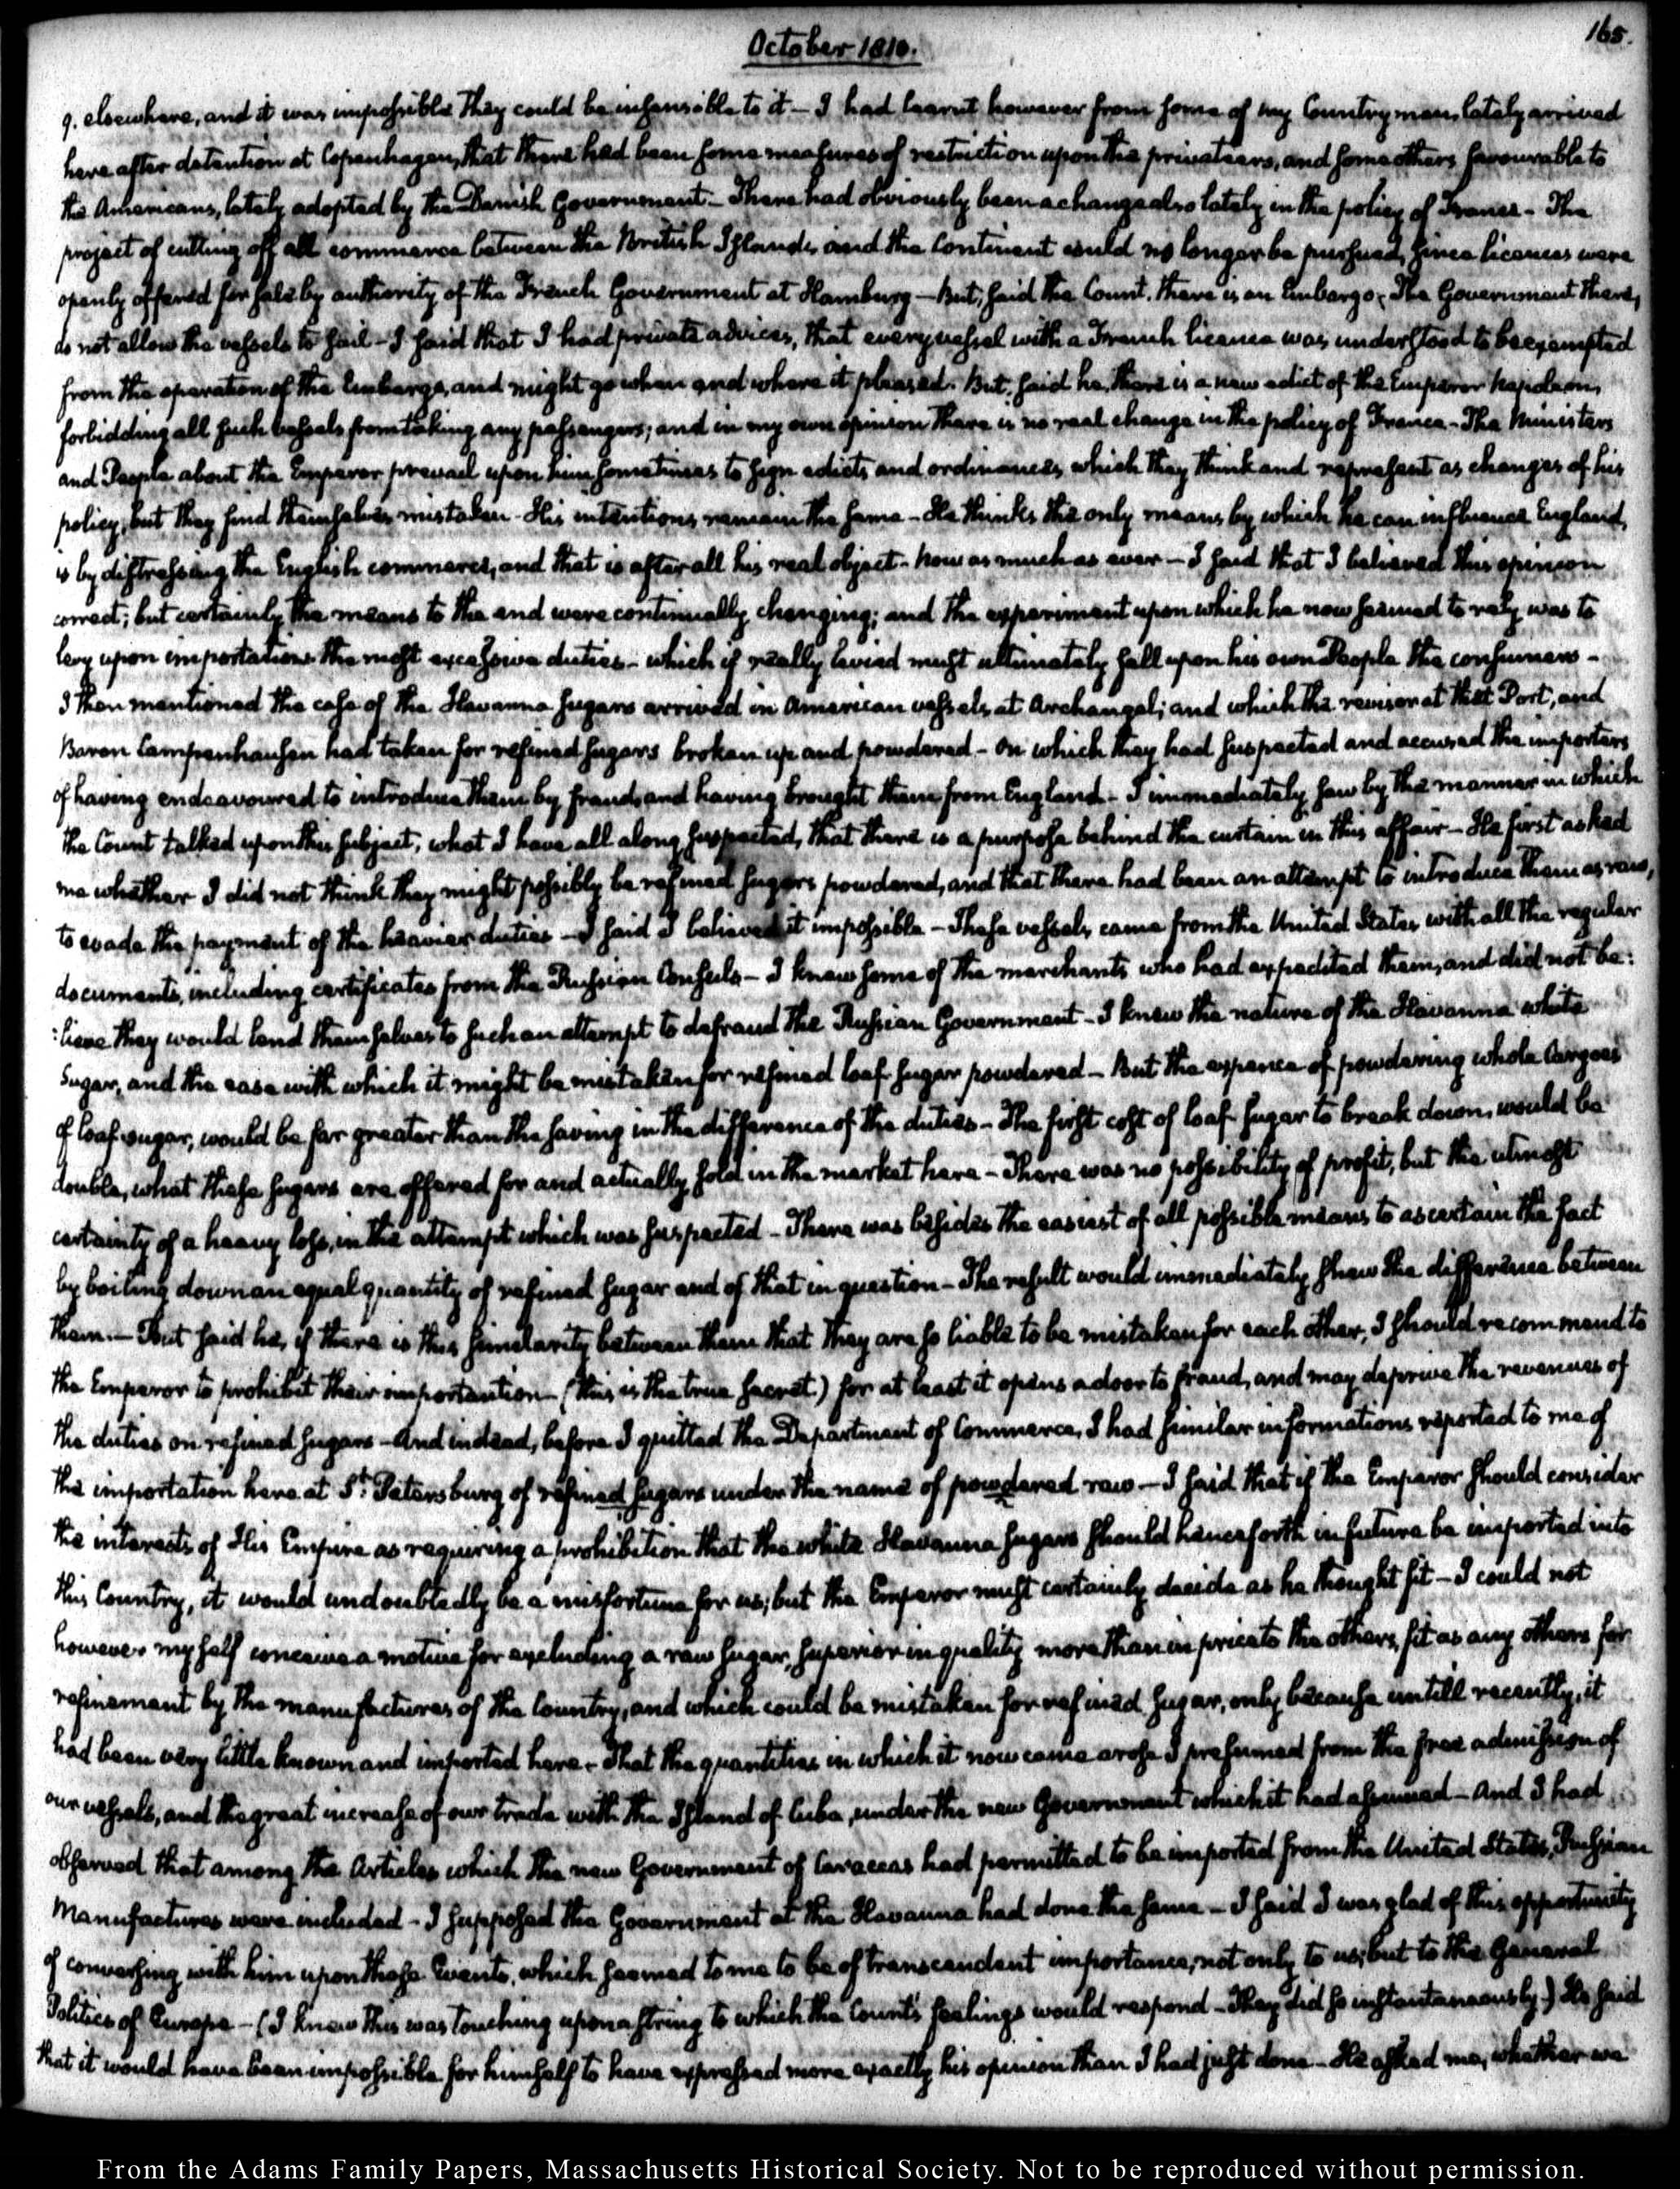 October 1810.
165.
9. elsewhere, and it was impossible they could be insensible to it — I had learnt however from some of my Countrymen, lately arrived
here after detention at Copenhagen, that there had been some measures of restriction upon the privateers, and some others favourable to
the Americans, lately adopted by the Danish Government — There had obviously been a change also lately in the policy of France — The
project of cutting off all commerce between the British Islands and the Continent could no longer be pursued, since licences were
openly offered for sale by authority of the French Government at Hamburg — But, said the Count, there is an Embargo; The Government there,
do not allow the vessels to sail — I said that I had private advices, that every vessel with a French licence was understood to be exempted
from the operation of the Embargo, and might go when and where it pleased. But, said he, there is a new edict of the Emperor Napoleon,
forbidding all such vessels from taking any passengers; and in my own opinion there is no real change in the policy of France — The Ministers
and People about the Emperor prevail upon him sometimes to sign edicts and ordinances, which they think and represent as changes of his
policy, but they find themselves mistaken — His intentions remain the same — He thinks the only means by which he can influence England,
is by distressing the English commerce, and that is after all his real object — now as much as ever — I said that I believed this opinion
correct; but certainly the means to the end were continually changing; and the experiment upon which he now seemed to rely was to
levy upon importations the most excessive duties — which if really levied must ultimately fall upon his own People the consumers —
I then mentioned the case of the Havanna sugars arrived in American vessels at Archangel; and which the revisor at that Port, and
Baron Campenhausen had taken for refined sugars broken up and powdered — on which they had suspected and accused the importers
of having endeavoured to introduce them by fraud, and having brought them from England — I immediately saw by the manner in which
the Count talked upon this subject, what I have all along suspected, that there is a purpose behind the curtain in this affair — He first asked
me whether I did not think they might possibly be refined sugars powdered, and that there had been an attempt to introduce them as raw,
to evade the payment of the heavier duties — I said I believed it impossible — These vessels came from the United States with all the regular
documents, including certificates from the Russian Consuls — I knew some of the merchants who had expedited them, and did not be:
:lieve they would lend themselves to such an attempt to defraud the Russian Government — I knew the nature of the Havanna white
Sugar, and the ease with which it might be mistaken for refined loaf sugar powdered — But the expence of powdering whole Cargoes
of loaf sugar, would be far greater than the saving in the difference of the duties — The first cost of loaf sugar to break down, would be
double, what these sugars are offered for and actually sold in the market here — There was no possibility of profit, but the utmost
certainty of a heavy loss, in the attempt which was suspected — There was besides the easiest of all possible means to ascertain the fact
by boiling down an equal quantity of refined sugar and of that in question — The result would immediately shew the difference between
them. — But said he, if there is this similarity between them that they are so liable to be mistaken for each other, I should recommend to
the Emperor to prohibit their importantion — (this is the true secret) for at least it opens a door to fraud, and may deprive the revenues of
the duties on refined sugars — And indeed, before I quitted the Department of Commerce, I had similar informations reported to me of
the importation here at St. Petersburg of refined sugars under the name of powdered raw — I said that if the Emperor should consider
the interests of His Empire as requiring a prohibition that the white Havanna sugars should henceforth in future be imported into
this Country, it would undoubtedly be a misfortune for us; but the Emperor must certainly decide as he thought fit — I could not
however myself conceive a motive for excluding a raw sugar, superior in quality more than in price to the others, fit as any others for
refinement by the manufactures of the Country, and which could be mistaken for refined sugar, only because untill recently, it
had been very little known and imported here — That the quantities in which it now came arose I presumed from the free admission of
our vessels, and the great increase of our trade with the Island of Cuba, under the new Government which it had assumed — And I had
observed that among the Articles which the new Government of Caraccas had permitted to be imported from the United States, Russian
Manufactures were included — I supposed the Government at the Havanna had done the same — I said I was glad of this opportunity
of conversing with him upon those Events, which seemed to me to be of transcendent importance, not only to us, but to the General
Politics of Europe — (I knew this was touching upon a string to which the Count's feelings would respond — They did so instantaneously.) He said
that it would have been impossible for himself to have expressed more exactly his opinion than I had just done — He asked me, whether we
From the Adams Family Papers, Massachusetts Historical Society. Not to be reproduced without permission.